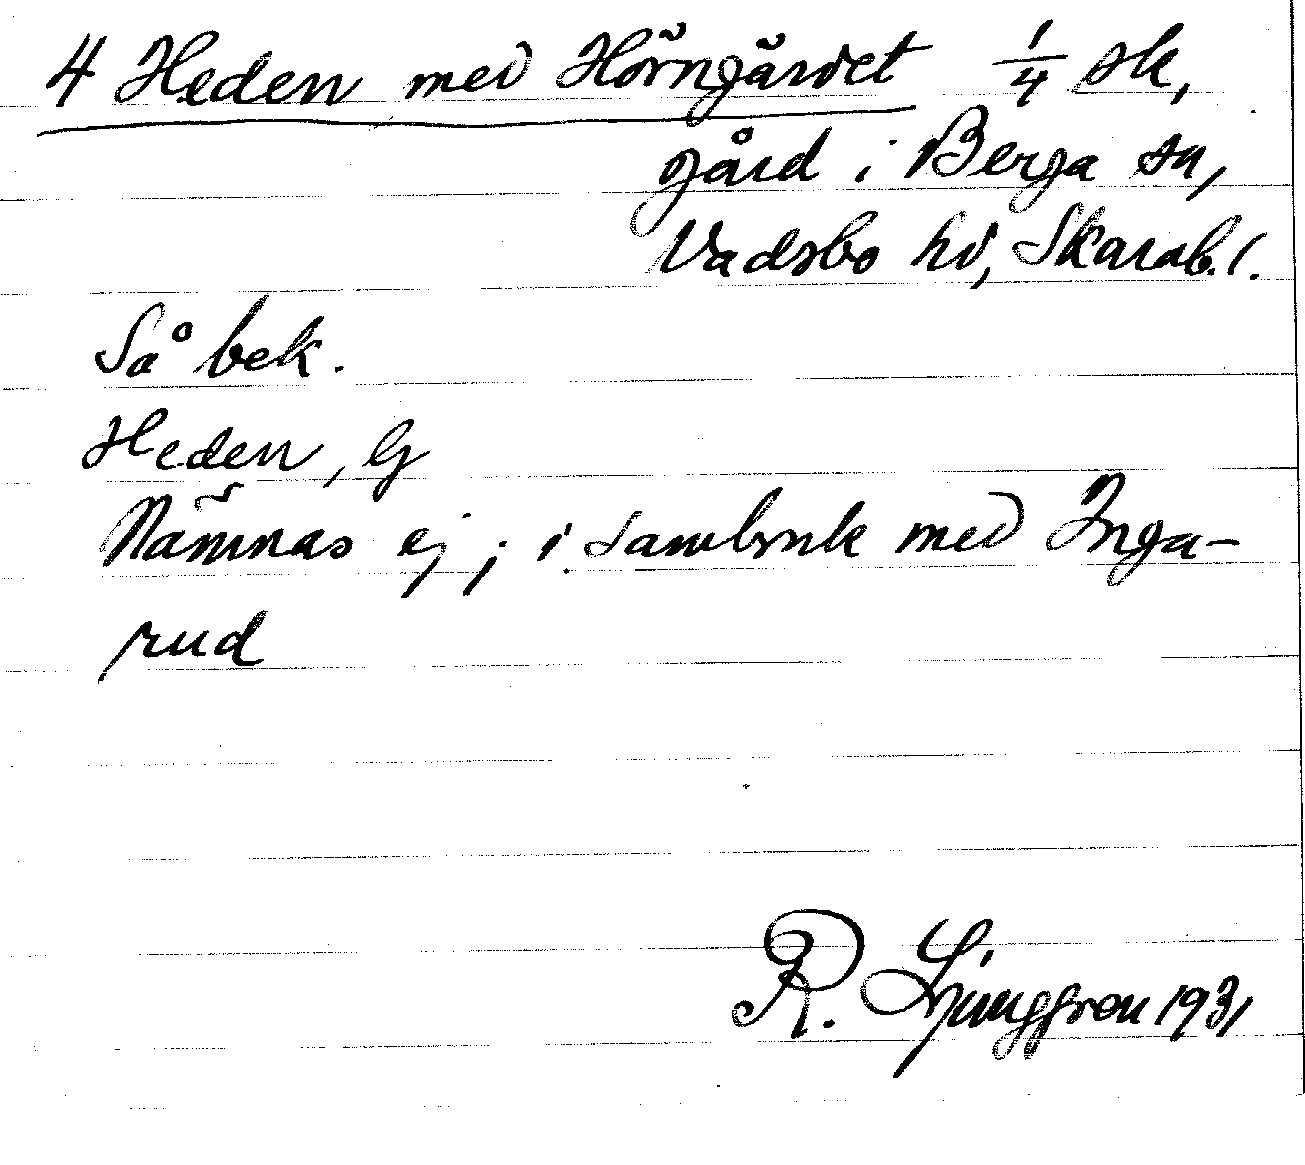 4 Heden med Hörngärdet 1/4 sk,
gård i Berga sn,
Vadsbo hd, Skarab. l.
Så bek.
Heden, G
Nämnas ej; i sambruk med Inga-
rud
R. Ljunggren 1931